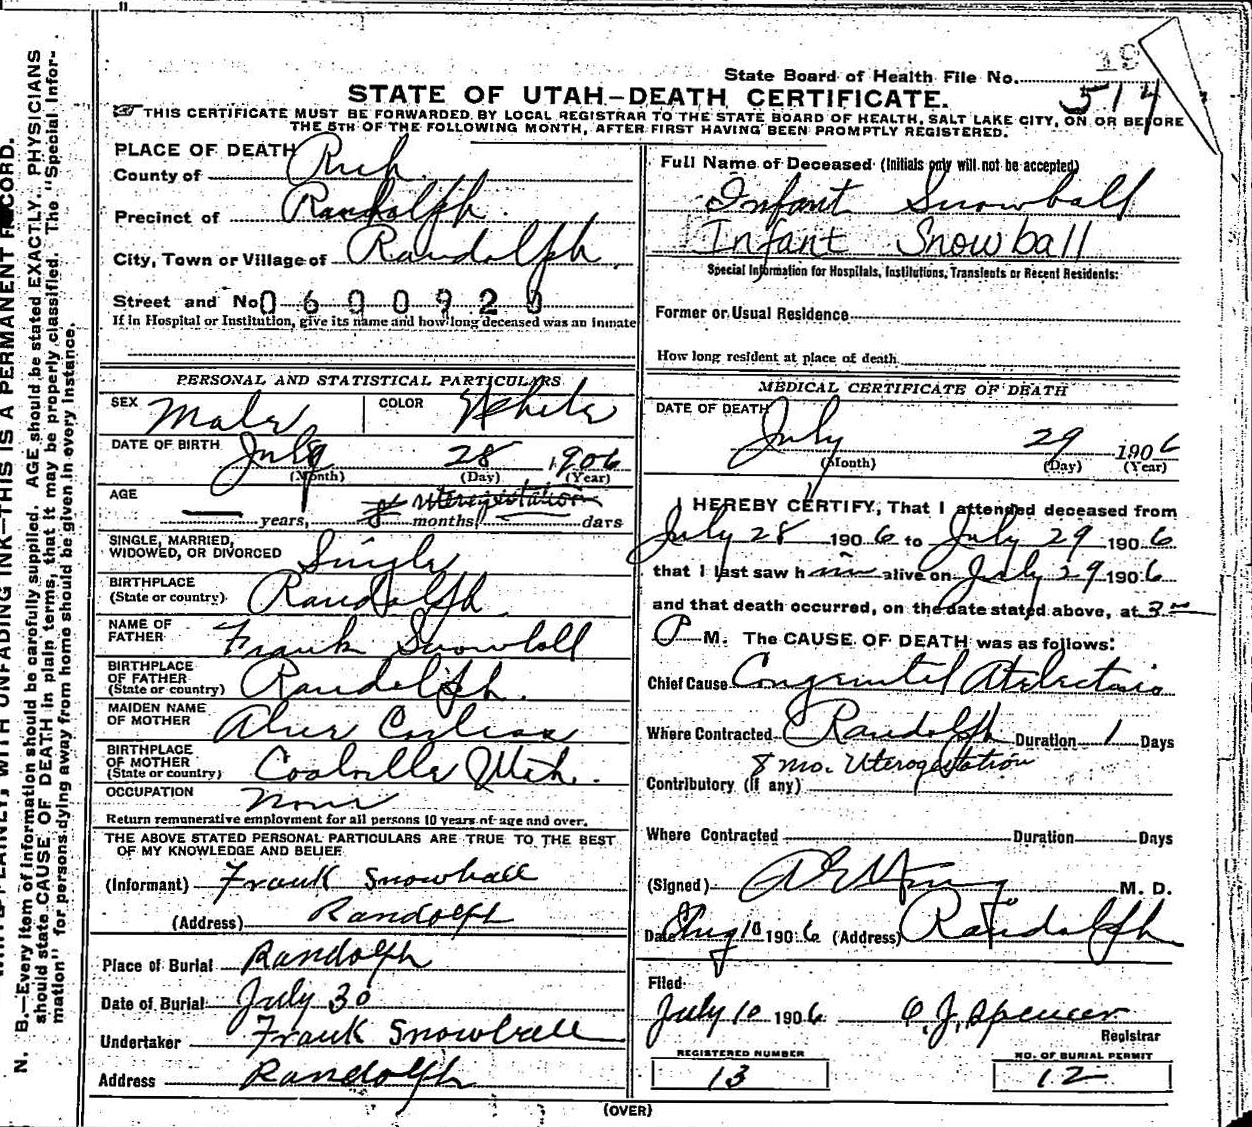 19
State Board of Health File No. 514
STATE OF UTAH—DEATH CERTIFICATE.
THIS CERTIFICATE MUST BE FORWARDED BY LOCAL REGISTRAR TO THE STATE BOARD OF HEALTH, SALT LAKE CITY, ON OR BEFORE
THE 5TH OF THE FOLLOWING MONTH, AFTER FIRST HAVING BEEN PROMPTLY REGISTERED.
PLACE OF DEATH
County of Rich
Precinct of Randolph
City, Town or Village of Randolph
Street and No. 0600920
If in Hospital or Institution, give its name and how long deceased was an inmate
PERSONAL AND STATISTICAL PARTICULARS
SEX Male COLOR White
DATE OF BIRTH July 28 1906
(Month) (Day) (Year)
AGE — years, 8 months, days
SINGLE, MARRIED,
WIDOWED, OR DIVORCED Single
BIRTHPLACE
(State or country) Randolph
NAME OF
FATHER Frank Snowball
BIRTHPLACE
OF FATHER
(State or country) Randolph.
MAIDEN NAME
OF MOTHER
BIRTHPLACE
OF MOTHER
(State or country) Coalville Utah.
OCCUPATION None
Return remunerative employment for all persons 10 years of age and over.
THE ABOVE STATED PERSONAL PARTICULARS ARE TRUE TO THE BEST
OF MY KNOWLEDGE AND BELIEF
(Informant) Frank Snowball
(Address) Randolph
Place of Burial Randolph
Date of Burial July 30
Undertaker Frank Snowball
Address Randolph
Full Name of Deceased (Initials only will not be accepted)
Infant Snowball
Infant Snowball
Special Information for Hospitals, Institutions, Transients or Recent Residents:
Former or Usual Residence
How long resident at place of death
MEDICAL CERTIFICATE OF DEATH
DATE OF DEATH July 29 1906
(Month) (Day) (Year)
I HEREBY CERTIFY, That I attended deceased from
July 28 1906 to July 29 1906
that I last saw h im alive on July 29 1906
and that death occurred, on the date stated above, at 3 00
P M. The CAUSE OF DEATH was as follows:
Chief Cause Congenital Atelectasis
Where Contracted Randolph Duration 1 Days
8 mo. Uterogestation
Contributory (if any)
Where Contracted Duration Days
(Signed) M. D.
Date Aug 10 1906 (Address) Randolph
Filed
July 10 1906 O. J. Spencer
Registrar
REGISTERED NUMBER
13
NO. OF BURIAL PERMIT
12
(OVER)
WITH UNFADING INK—THIS IS A PERMANENT RECORD.
N. B.—Every item of information should be carefully supplied. AGE should be stated EXACTLY. PHYSICIANS
should state CAUSE OF DEATH in plain terms, that it may be properly classified. The "Special Infor-
mation" for persons dying away from home should be given in every instance.